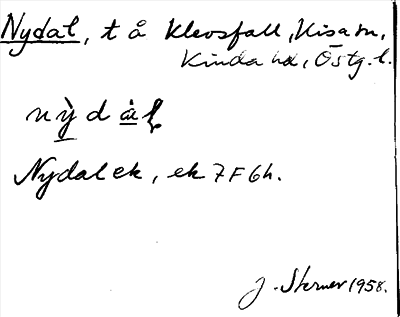 Nydal, t å Klevsfall, Kisa sn,
Kinda hd, Östg. l.
nỳdàl
Nydal ek, ek 7F6h.
J. Sterner 1958.